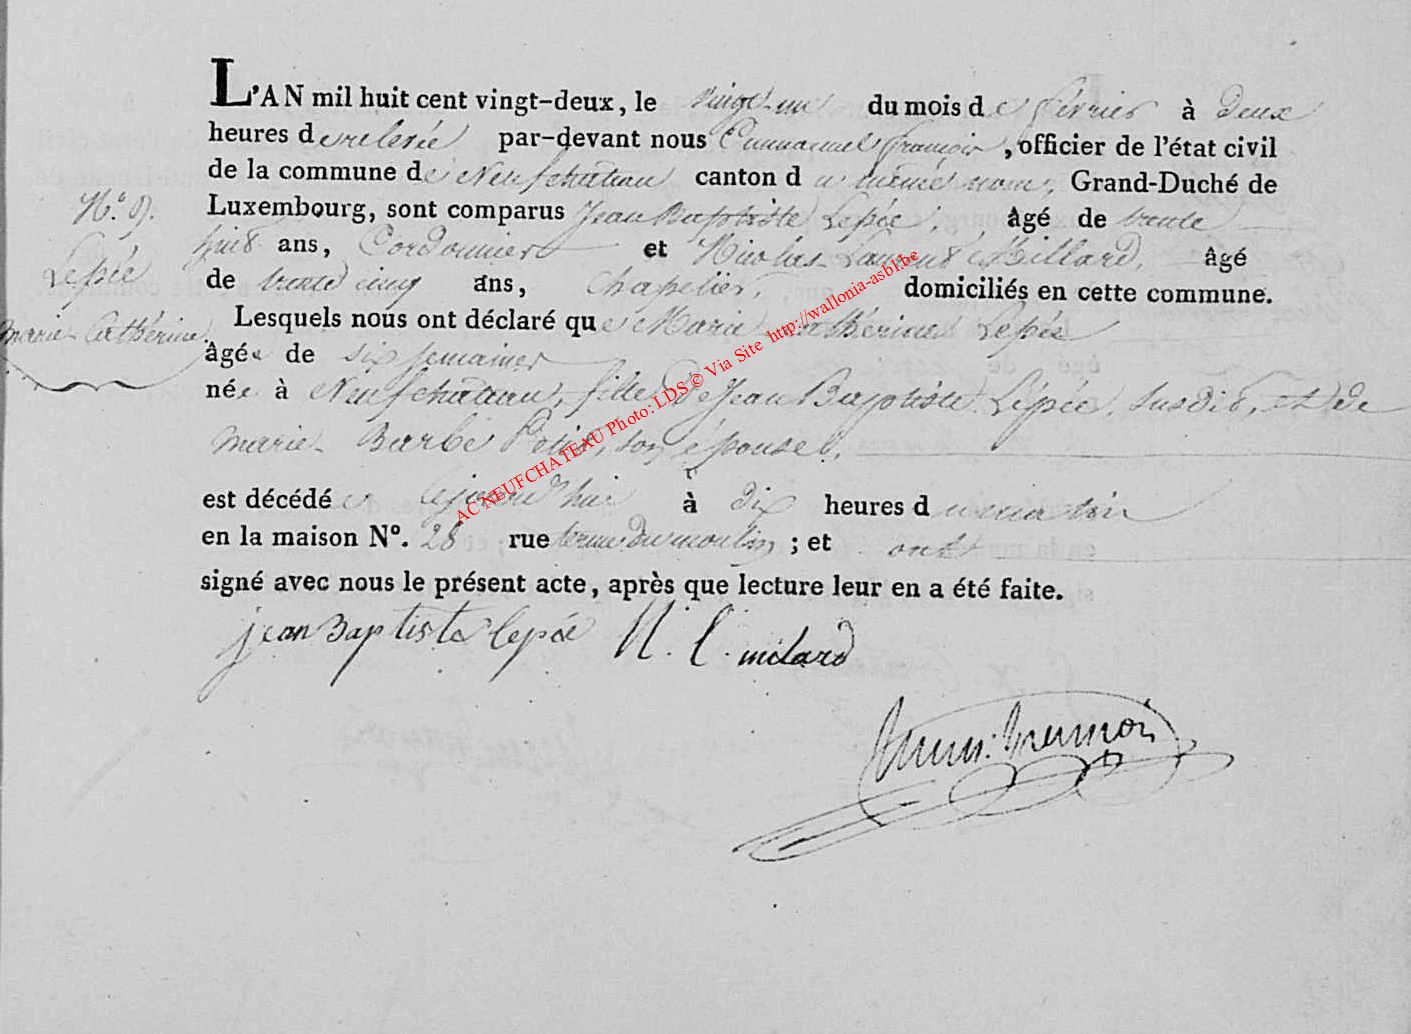 L'AN mil huit cent vingt-deux, le vingt-un du mois de février à deux
heures de relevée par-devant nous Emmanuel François, officier de l'état civil
de la commune de Neufchâteau canton du même nom, Grand-Duché de
N.° 9. Luxembourg, sont comparus Jean Baptiste Lepée, âgé de trente
huit ans, Cordonnier et Nicolas Laurent Millard, âgé
Lepée de trente cinq ans, Chapelier, domiciliés en cette commune.
Marie-Catherine. Lesquels nous ont déclaré que Marie Catherine Lepée
âgée de six semaines
née à Neufchateau, fille de Jean Baptiste Lépée, susdit, et de
Marie-Barbe Petit, son épouse,
est décédée aujourd'hui à dix heures du matin
en la maison N°. 28 rue terme du moulin ; et ont
signé avec nous le présent acte, après que lecture leur en a été faite.
jean Baptiste lepée N. L. milard
Emm. François
AC NEUFCHATEAU Photo: LDS © Via Site http://wallonia-asbl.be